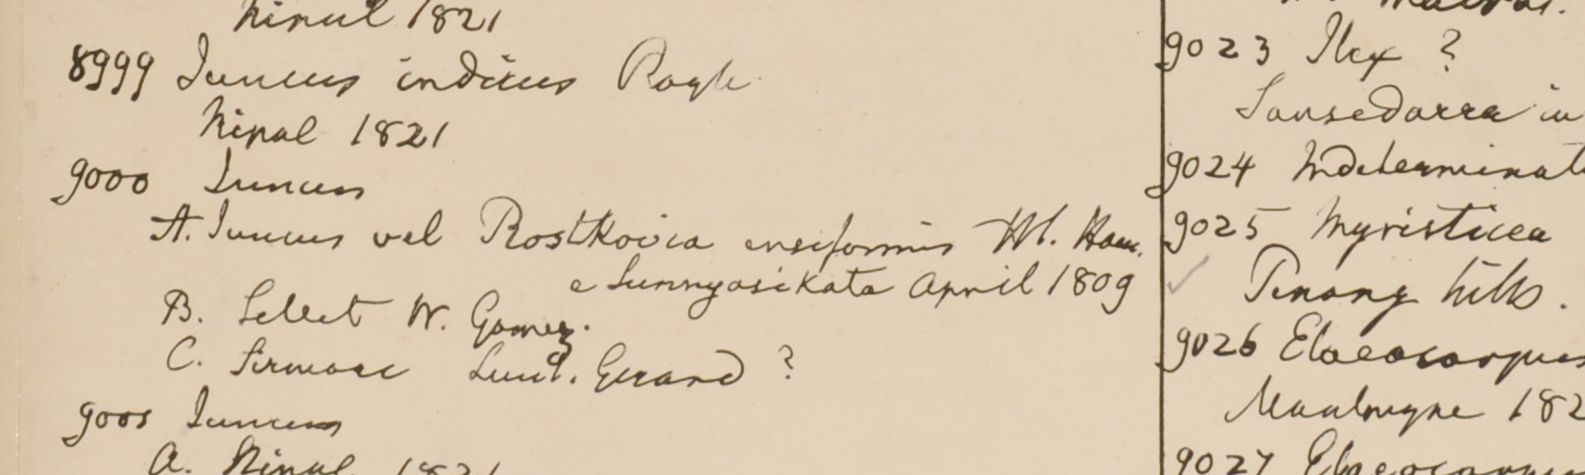 Nipul 1821
8999 Juncus indicus Royle
Nipal 1821
9000 Juncus
A. Juncus vel Rostkovia ensiformis Hb. Ham.
e Sunnyasikata April 1809
B. Sellet W. Gomez.
C. Sirmore Lieut. Gerard ?
9001 Juncus
a. Nipal 1821
9023 Ilex ?
in
9024 Indeterminat
9025 Myristicea
✓ Penang hills.
9026 Elaeocarpus
182
9027